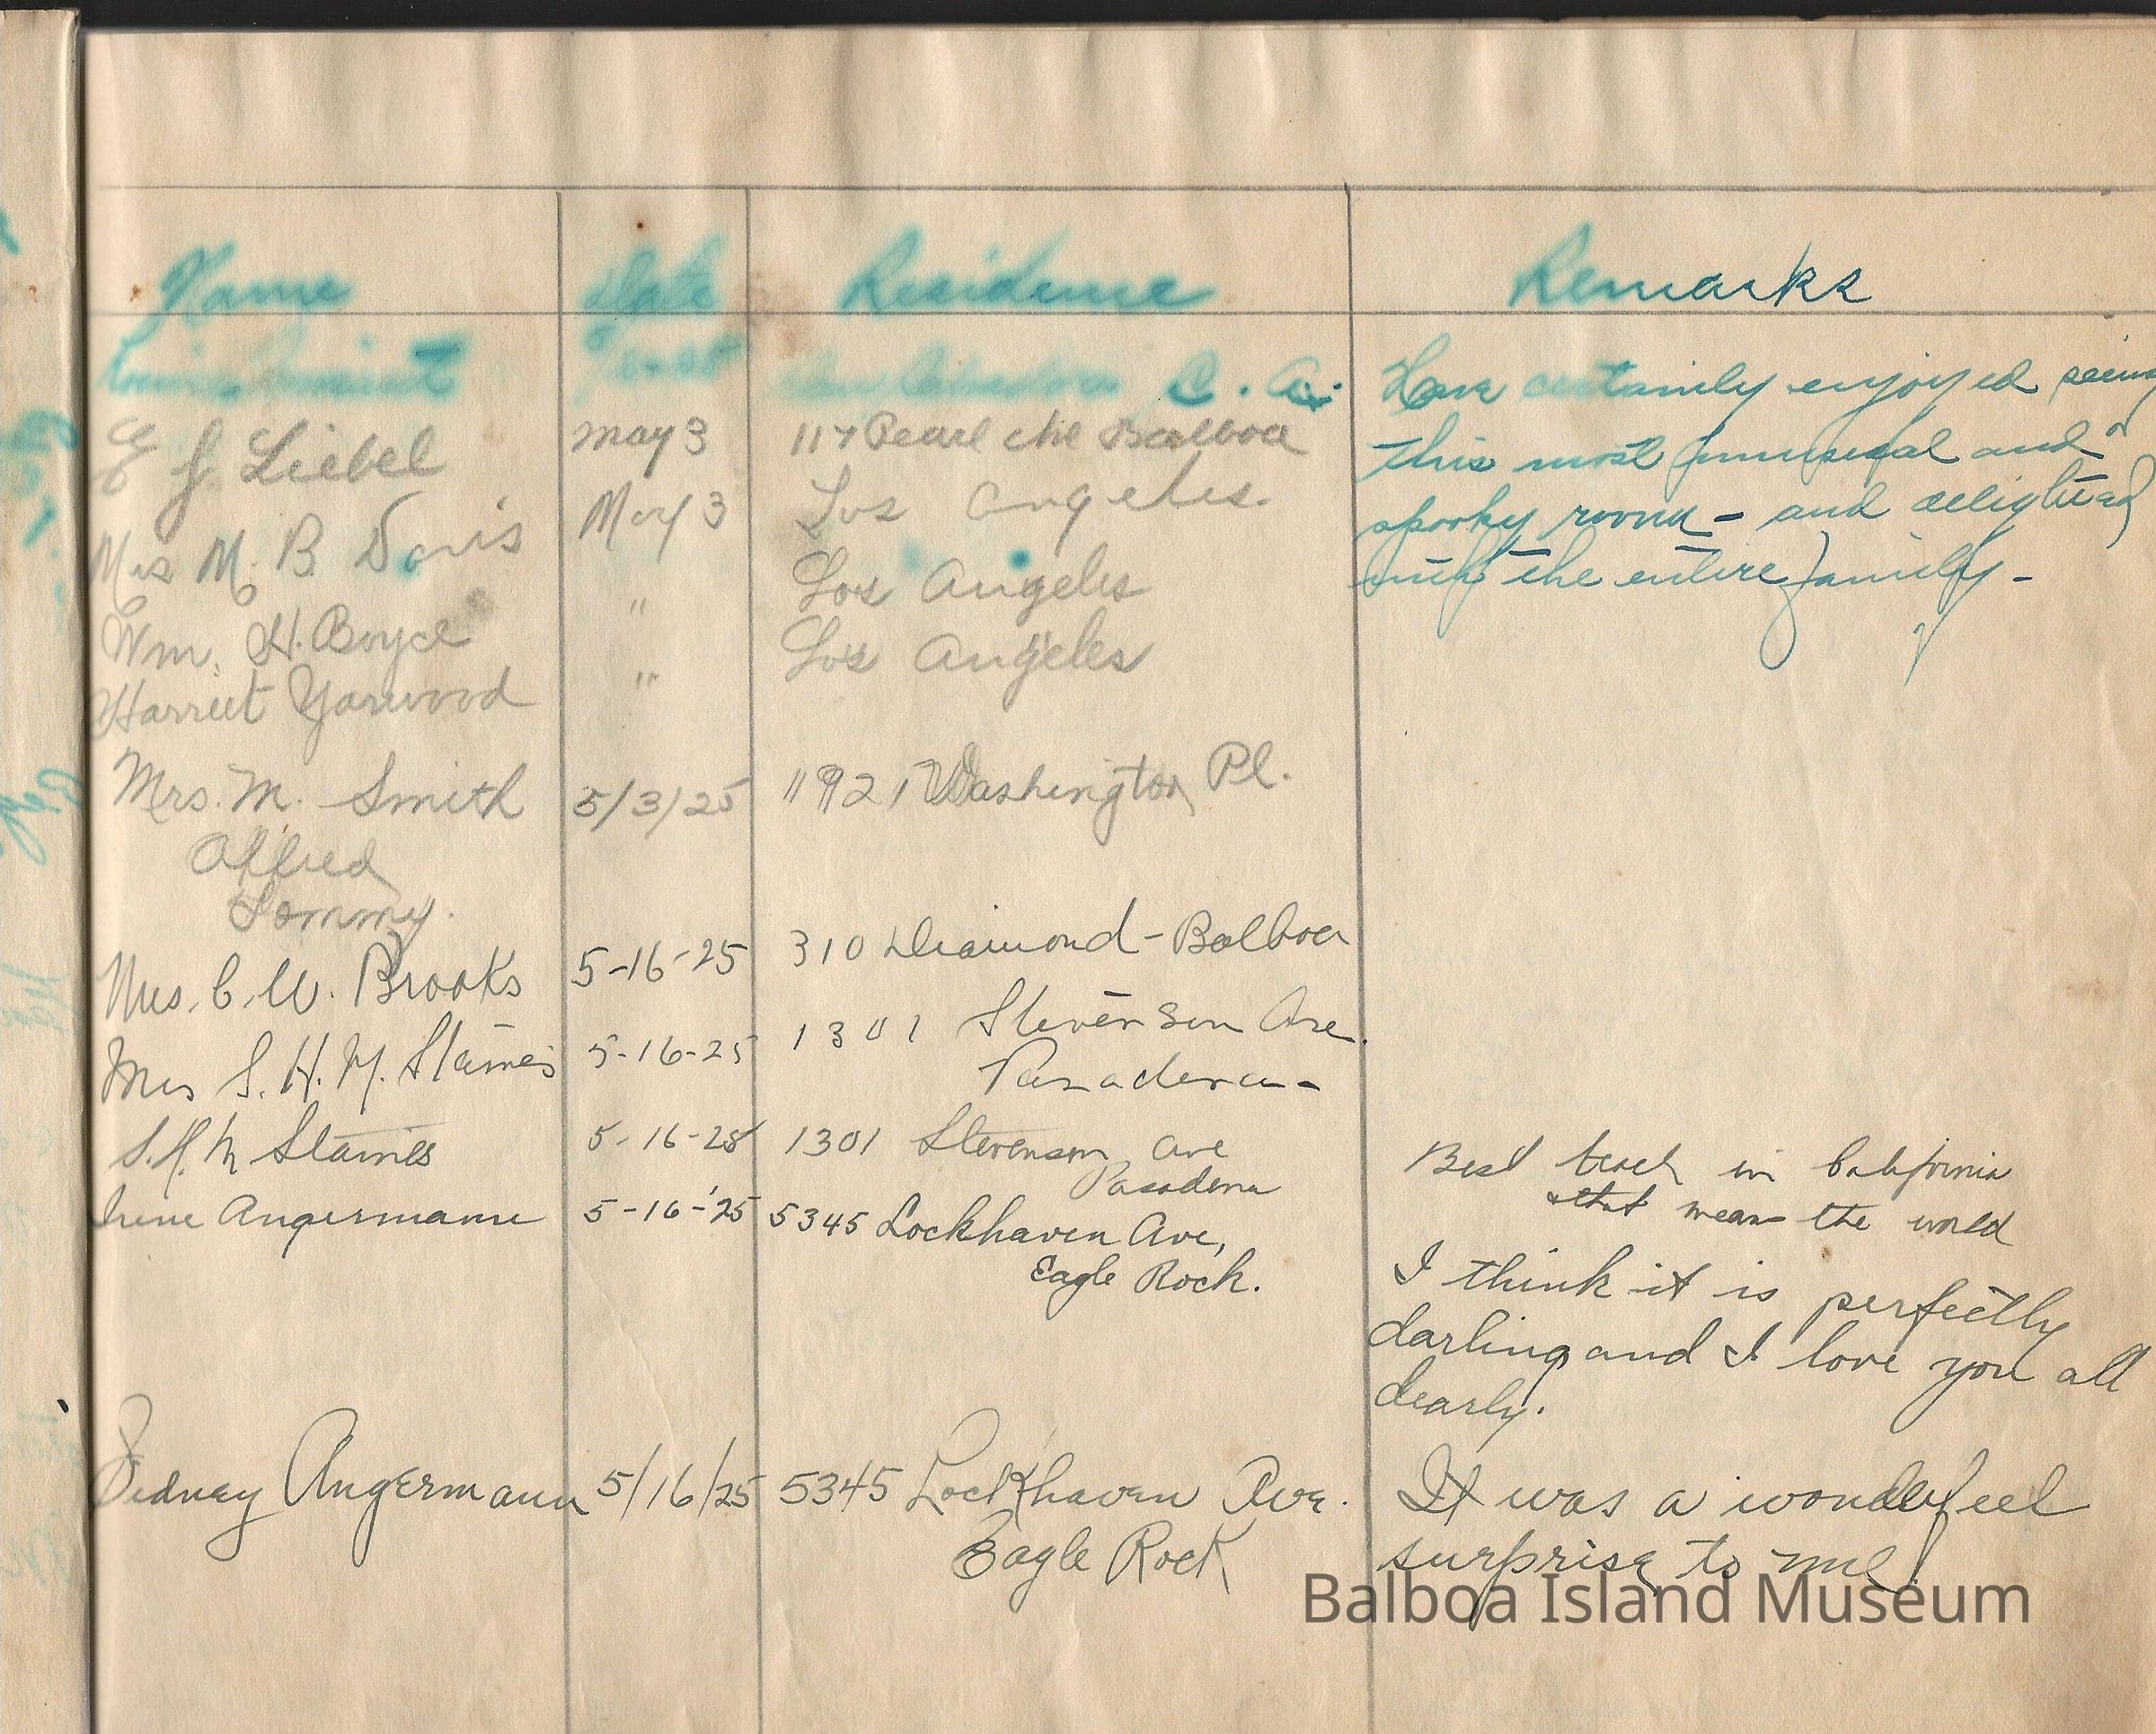 Name Date Residence Remarks
C. A. Have certainly enjoyed seeing
E J. Liebel May 3 117 Pearl Ave Balboa this most unusual and
Mrs M. B. Davis May 3 Los Angeles. spooky room - and delighted
Wm. H. Boyce " Los Angeles with the entire family -
Harriet Yarwood " Los Angeles
Mrs. M. Smith 5/3/25 1921 Washington Pl.
Alfred
Tommy.
Mrs. C. W. Brooks 5-16-25 310 Diamond - Balboa
Mrs S. H. M. Staines 5-16-25 1301 Stevenson Ave.
Pasadena -
S. H. M Staines 5-16-25 1301 Stevenson Ave Best in California
Pasadena that means the world
Irene Angermann 5-16-'25 5345 Lockhaven Ave,
Eagle Rock.
I think it is perfectly
darling and I love you all
dearly.
Sidney Angermann 5/16/25 5345 Lockhaven Ave. It was a wonderfeel
Eagle Rock surprise to me!
Balboa Island Museum